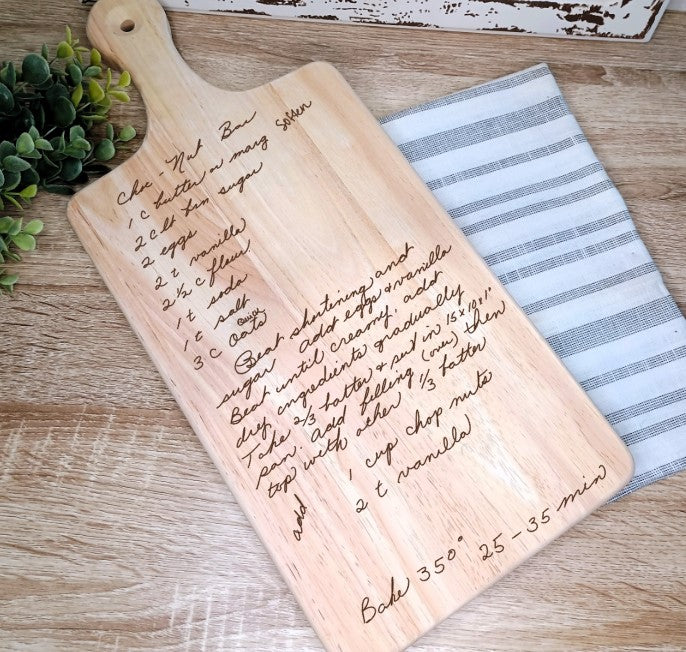 Choc-Nut Bar
1 c butter or marg soften
2 c lt brn sugar
2 eggs
2 t vanilla
2 1/2 c flour
1 t soda
1 t salt
3 c Quick Oats
Beat shortening and
sugar add eggs & vanilla
Beat until creamy, add
dry ingredients gradually
Take 2/3 batter & put in 15 x 10 x 1"
pan. Add filling (over) then
top with other 1/3 batter
add 1 cup chop nuts
2 t vanilla
Bake 350° 25-35 min